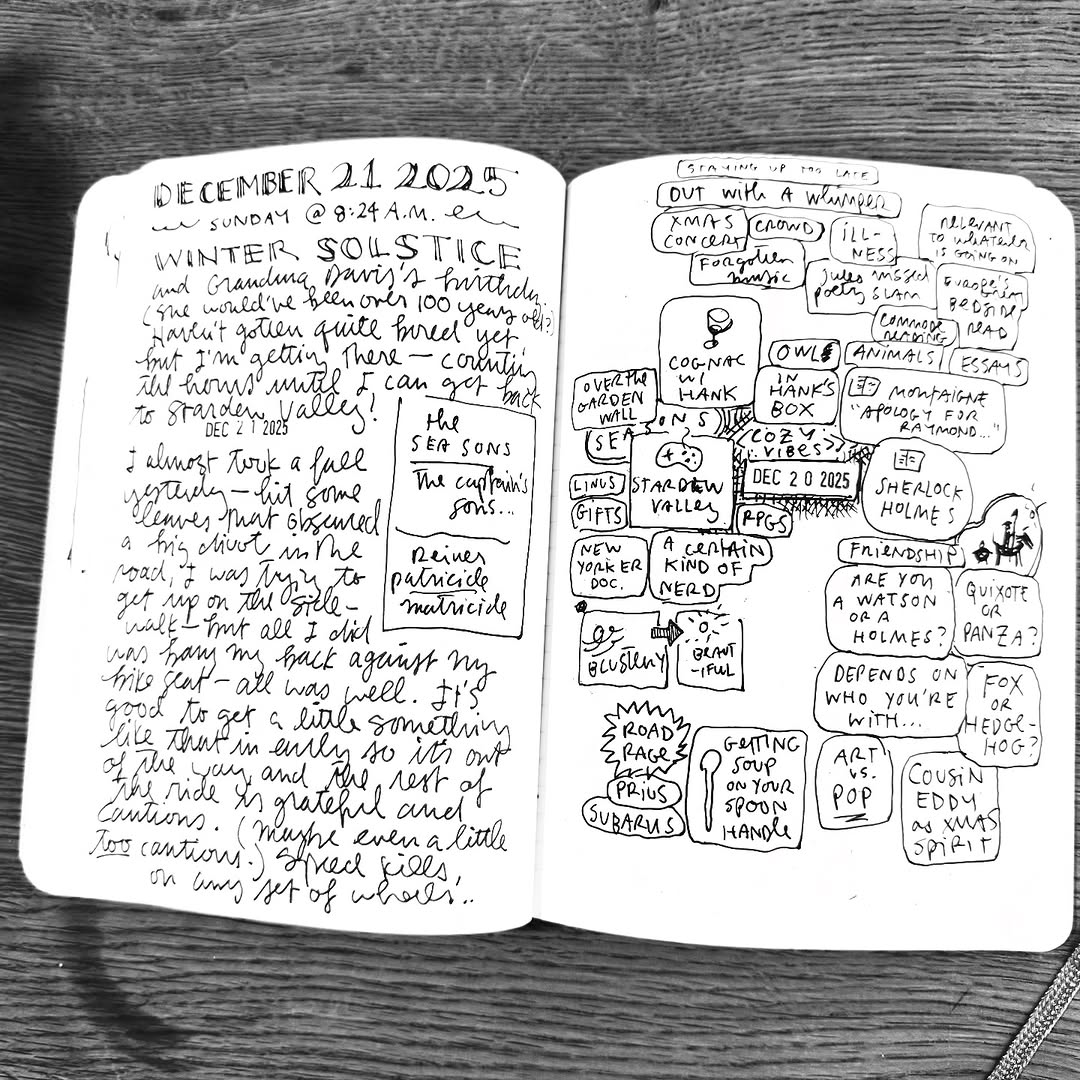 DECEMBER 21 2025
SUNDAY @ 8:24 A.M.
WINTER SOLSTICE
and Grandma Davis's birthday
(she would've been over 100 years old?)
Haven't gotten quite bored yet
but I'm getting there — counting
the hours until I can get back
to Stardew Valley!
DEC 21 2025
I almost took a fall
yesterday — hit some
leaves that obscured
a big divot in the
road, I was trying to
get up on the side-
walk — but all I did
was bang my back against my
bike seat — all was well. It's
good to get a little something
like that in early so it's out
of the way and the rest of
the ride is grateful and
cautious. (Maybe even a little
too cautious.) Speed kills,
on any set of wheels..
the
SEASONS
The captain's
sons...
Reiner
patricide
matricide
STAYING UP TOO LATE
OUT WITH A WHIMPER
XMAS
CONCERT
CROWD
ILL-
NESS
RELEVANT
TO WHATEVER
IS GOING ON
FORGOTTEN
MUSIC
JULES MISSED
POETRY SLAM
EUROPE'S
GREAT
BEDSIDE
READ
COMMODE
READING
COGNAC
W/
HANK
OWL
ANIMALS
ESSAYS
OVER THE
GARDEN
WALL
IN
HANK'S
BOX
MONTAIGNE
"APOLOGY FOR
RAYMOND..."
SEASONS
COZY
VIBES
DEC 20 2025
STARDEW
VALLEY
LINUS
GIFTS
RPGS
SHERLOCK
HOLMES
NEW
YORKER
DOC.
A CERTAIN
KIND OF
NERD
FRIENDSHIP
ARE YOU
A WATSON
OR A
HOLMES?
QUIXOTE
OR
PANZA?
BLUSTERY
BEAUT
-IFUL
DEPENDS ON
WHO YOU'RE
WITH...
FOX
OR
HEDGE-
HOG?
ROAD
RAGE
PRIUS
SUBARUS
GETTING
SOUP
ON YOUR
SPOON
HANDLE
ART
VS.
POP
COUSIN
EDDY
as XMAS
SPIRIT